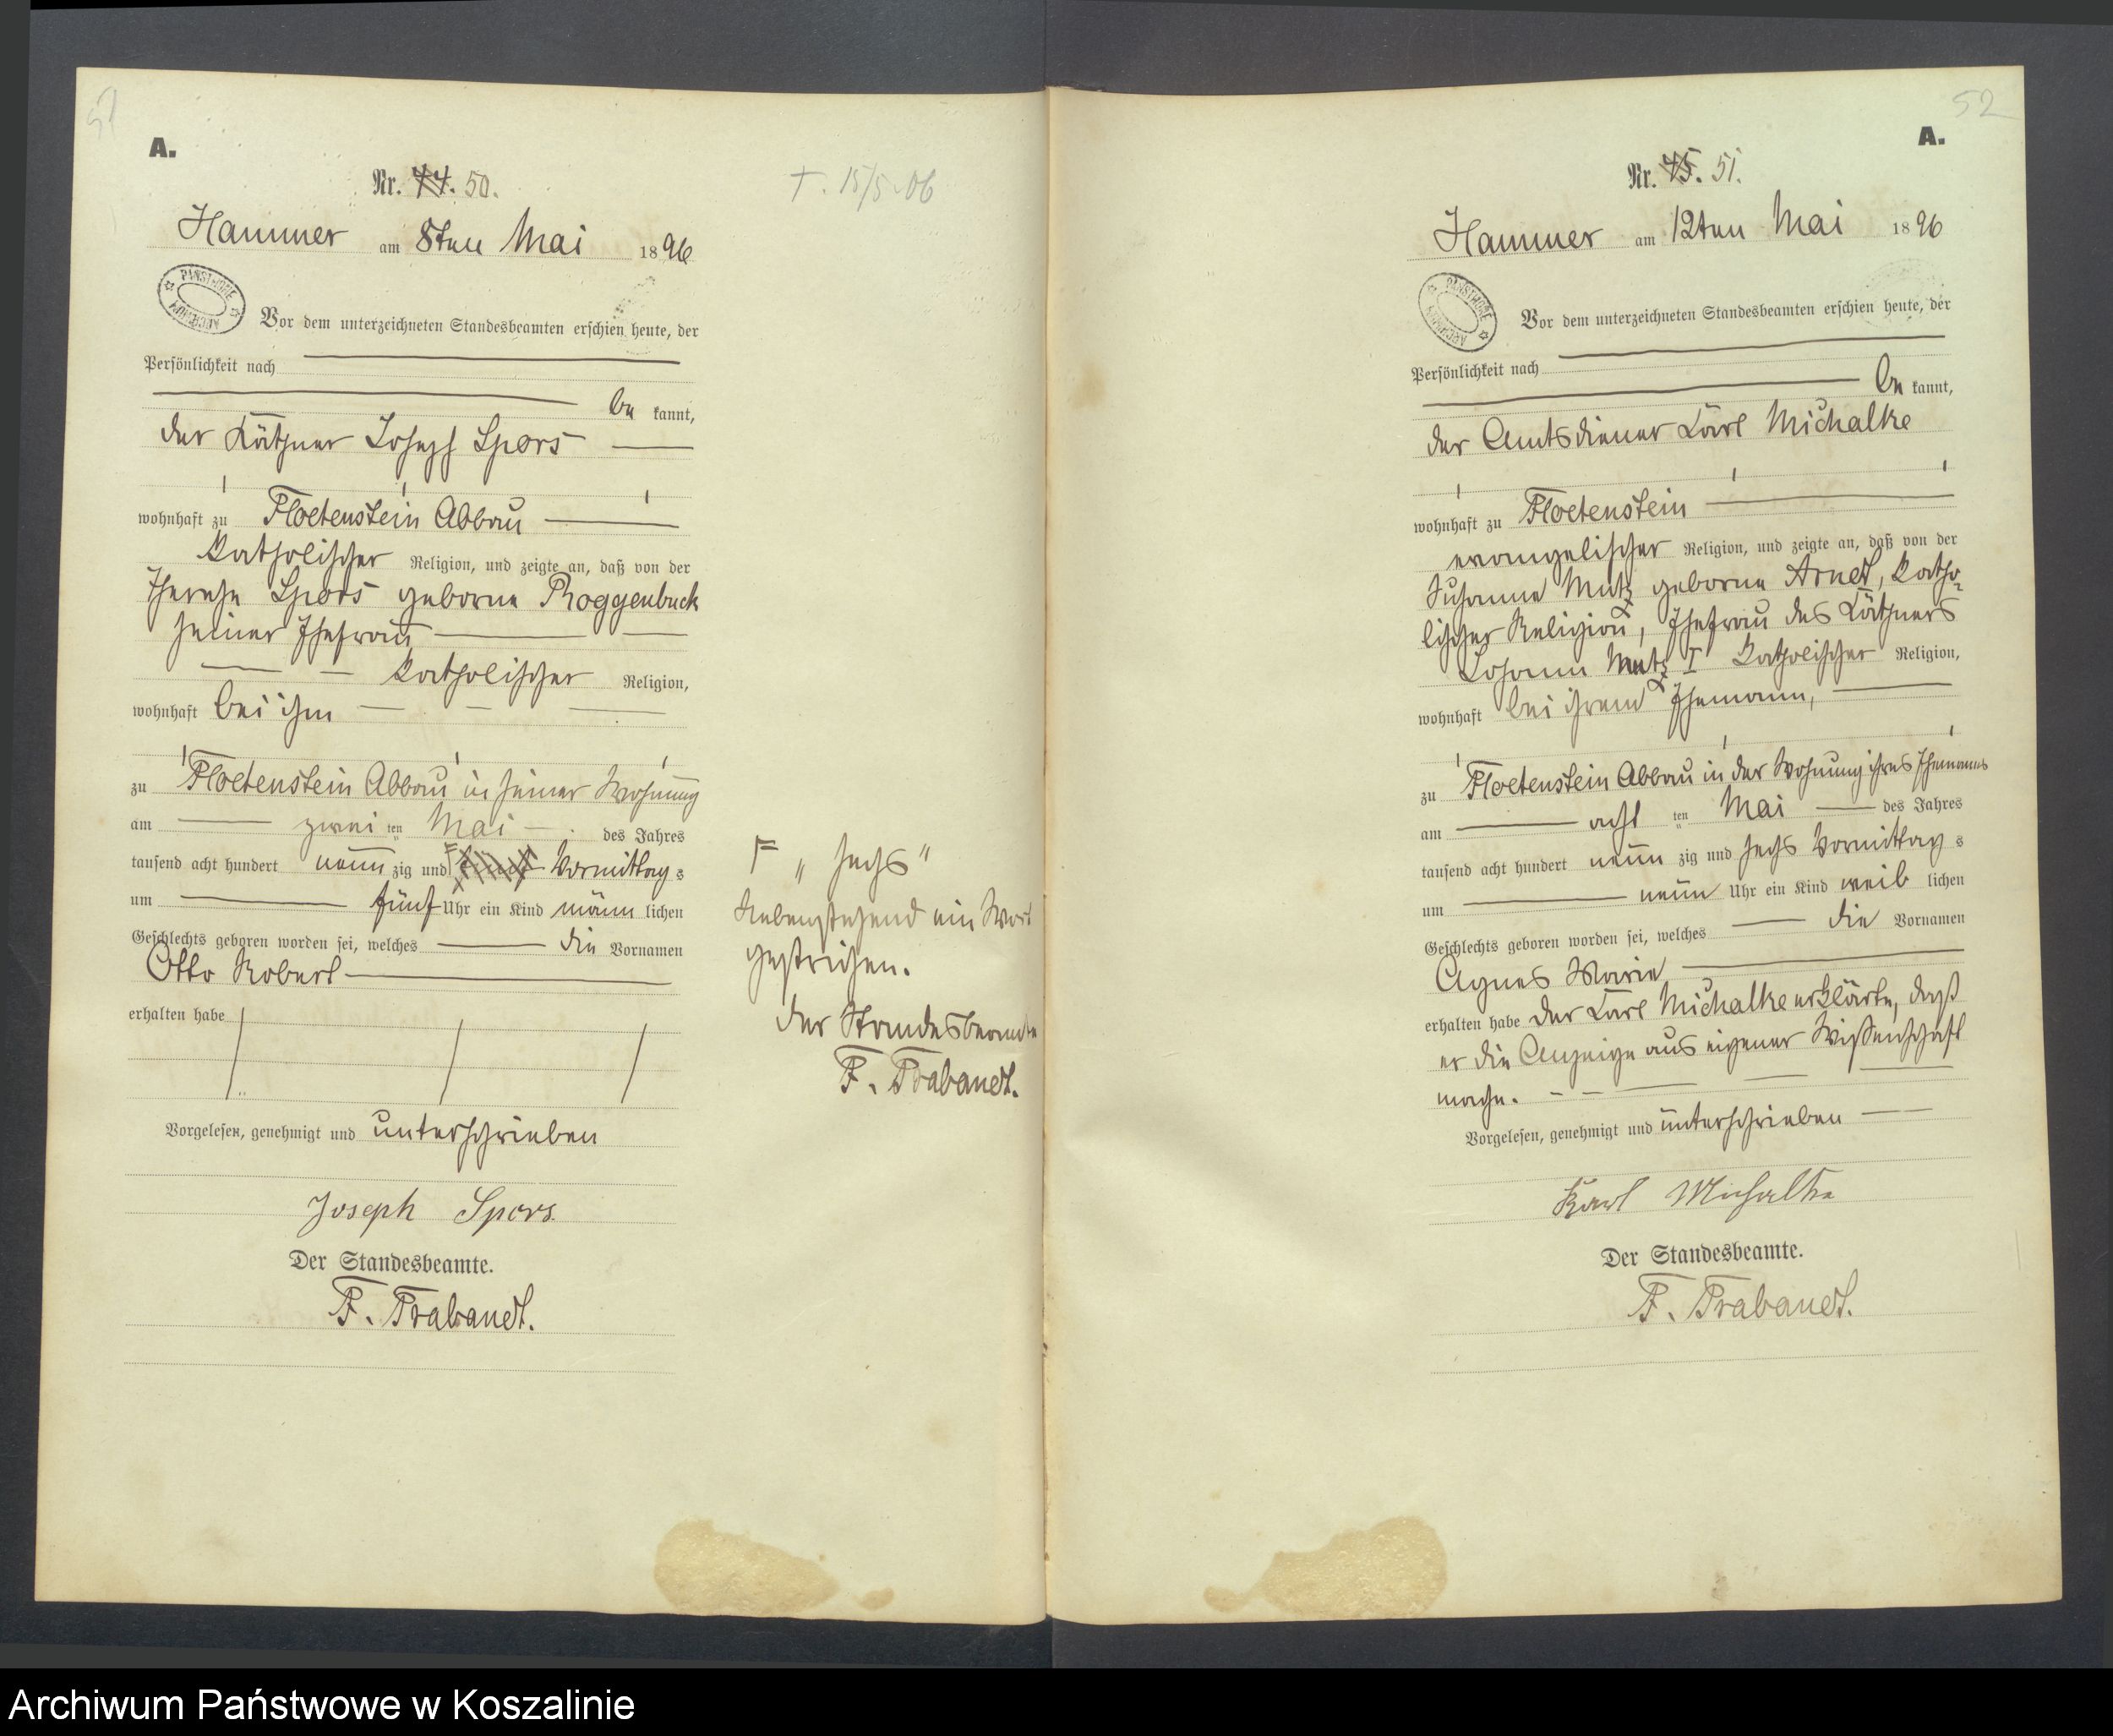 51
A.
Nr. 44. 50.
+. 15/5.06
Hammer am 8ten Mai 1896
PAŃSTWOWE ARCHIWUM
Vor dem unterzeichneten Standesbeamten erschien heute, der
Persönlichkeit nach
be kannt,
der Käthner Joseph Spors
wohnhaft zu Floetenstein Abbau
katholischer Religion, und zeigte an, daß von der
Therese Spors geborne Roggenbuck
seiner Ehefrau
katholischer Religion,
wohnhaft bei ihm
zu Floetenstein Abbau in seiner Wohnung
am zwei ten Mai des Jahres
tausend acht hundert neun zig und fünf Vormittag s
um fünf Uhr ein Kind männ lichen
Geschlechts geboren worden sei, welches die Vornamen
Otto Robert
erhalten habe
Vorgelesen, genehmigt und unterschrieben
Joseph Spors.
Der Standesbeamte.
F. Trabandt.
F „ sechs "
Nebenstehend ein Wort
gestrichen.
Der Standesbeamte
F. Trabandt.
52
A.
Nr. 45. 51.
Hammer am 12ten Mai 1896
PAŃSTWOWE ARCHIWUM
Vor dem unterzeichneten Standesbeamten erschien heute, der
Persönlichkeit nach
be kannt,
der Amtsdiener Karl Michalke
wohnhaft zu Floetenstein
evangelischer Religion, und zeigte an, daß von der
Susanne Mutz geborne Arndt, katho-
lischer Religion, Ehefrau des Käthners
Johann Mutz I katholischer Religion,
wohnhaft bei ihrem Ehemann,
zu Floetenstein Abbau in der Wohnung ihres Ehemanns
am acht ten Mai des Jahres
tausend acht hundert neun zig und sechs Vormittag s
um neun Uhr ein Kind weib lichen
Geschlechts geboren worden sei, welches die Vornamen
Agnes Marie
erhalten habe Der Karl Michalke erklärte, daß
er die Anzeige aus eigener Wissenschaft
mache.
Vorgelesen, genehmigt und unterschrieben
Karl Michalke
Der Standesbeamte.
F. Trabandt.
Archiwum Państwowe w Koszalinie